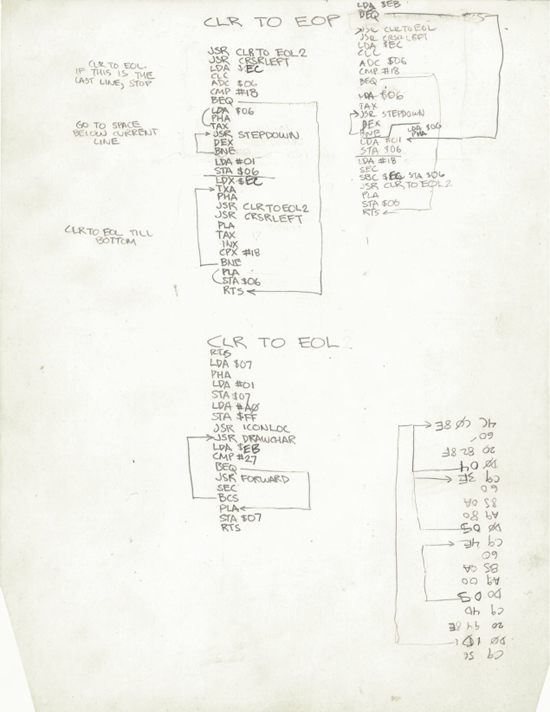 CLR TO EOP
JSR CLR TO EOL2
JSR CRSRLEFT
LDA $EC
CLC
ADC $06
CMP #18
BEQ
LDA $06
PHA
TAX
JSR STEPDOWN
DEX
BNE
LDA #01
STA $06
LDX $EC
TXA
PHA
JSR CLRTOEOL2
JSR CRSRLEFT
PLA
TAX
INX
CPX #18
BNE
PLA
STA $06
RTS
CLR TO EOL.
IF THIS IS THE
LAST LINE, STOP
GO TO SPACE
BELOW CURRENT
LINE
CLR TO EOL TILL
BOTTOM
LDA $EB
BEQ
JSR CLRTOEOL
JSR CRSRLEFT
LDA $EC
CLC
ADC $06
CMP #18
BEQ
LDA $06
TAX
JSR STEPDOWN
DEX
BNE
LDA $06
PHA
LDA #01
STA $06
LDA #18
SEC
SBC $EC STA $06
JSR CLR TO EOL2
PLA
STA $06
RTS
CLR TO EOL
RTS
LDA $07
PHA
LDA #01
STA $07
LDA #A0
STA $FF
JSR ICONLOC
JSR DRAWCHAR
LDA $EB
CMP #27
BEQ
JSR FORWARD
SEC
BCS
PLA
STA $07
RTS
C9 5C
D0 1D
20 94 8E
C9 4D
D0 05
A9 00
85 0A
60
C9 4E
D0 05
A9 80
85 0A
60
C9 3E
D0 04
20 82 8F
60
4C C0 8E